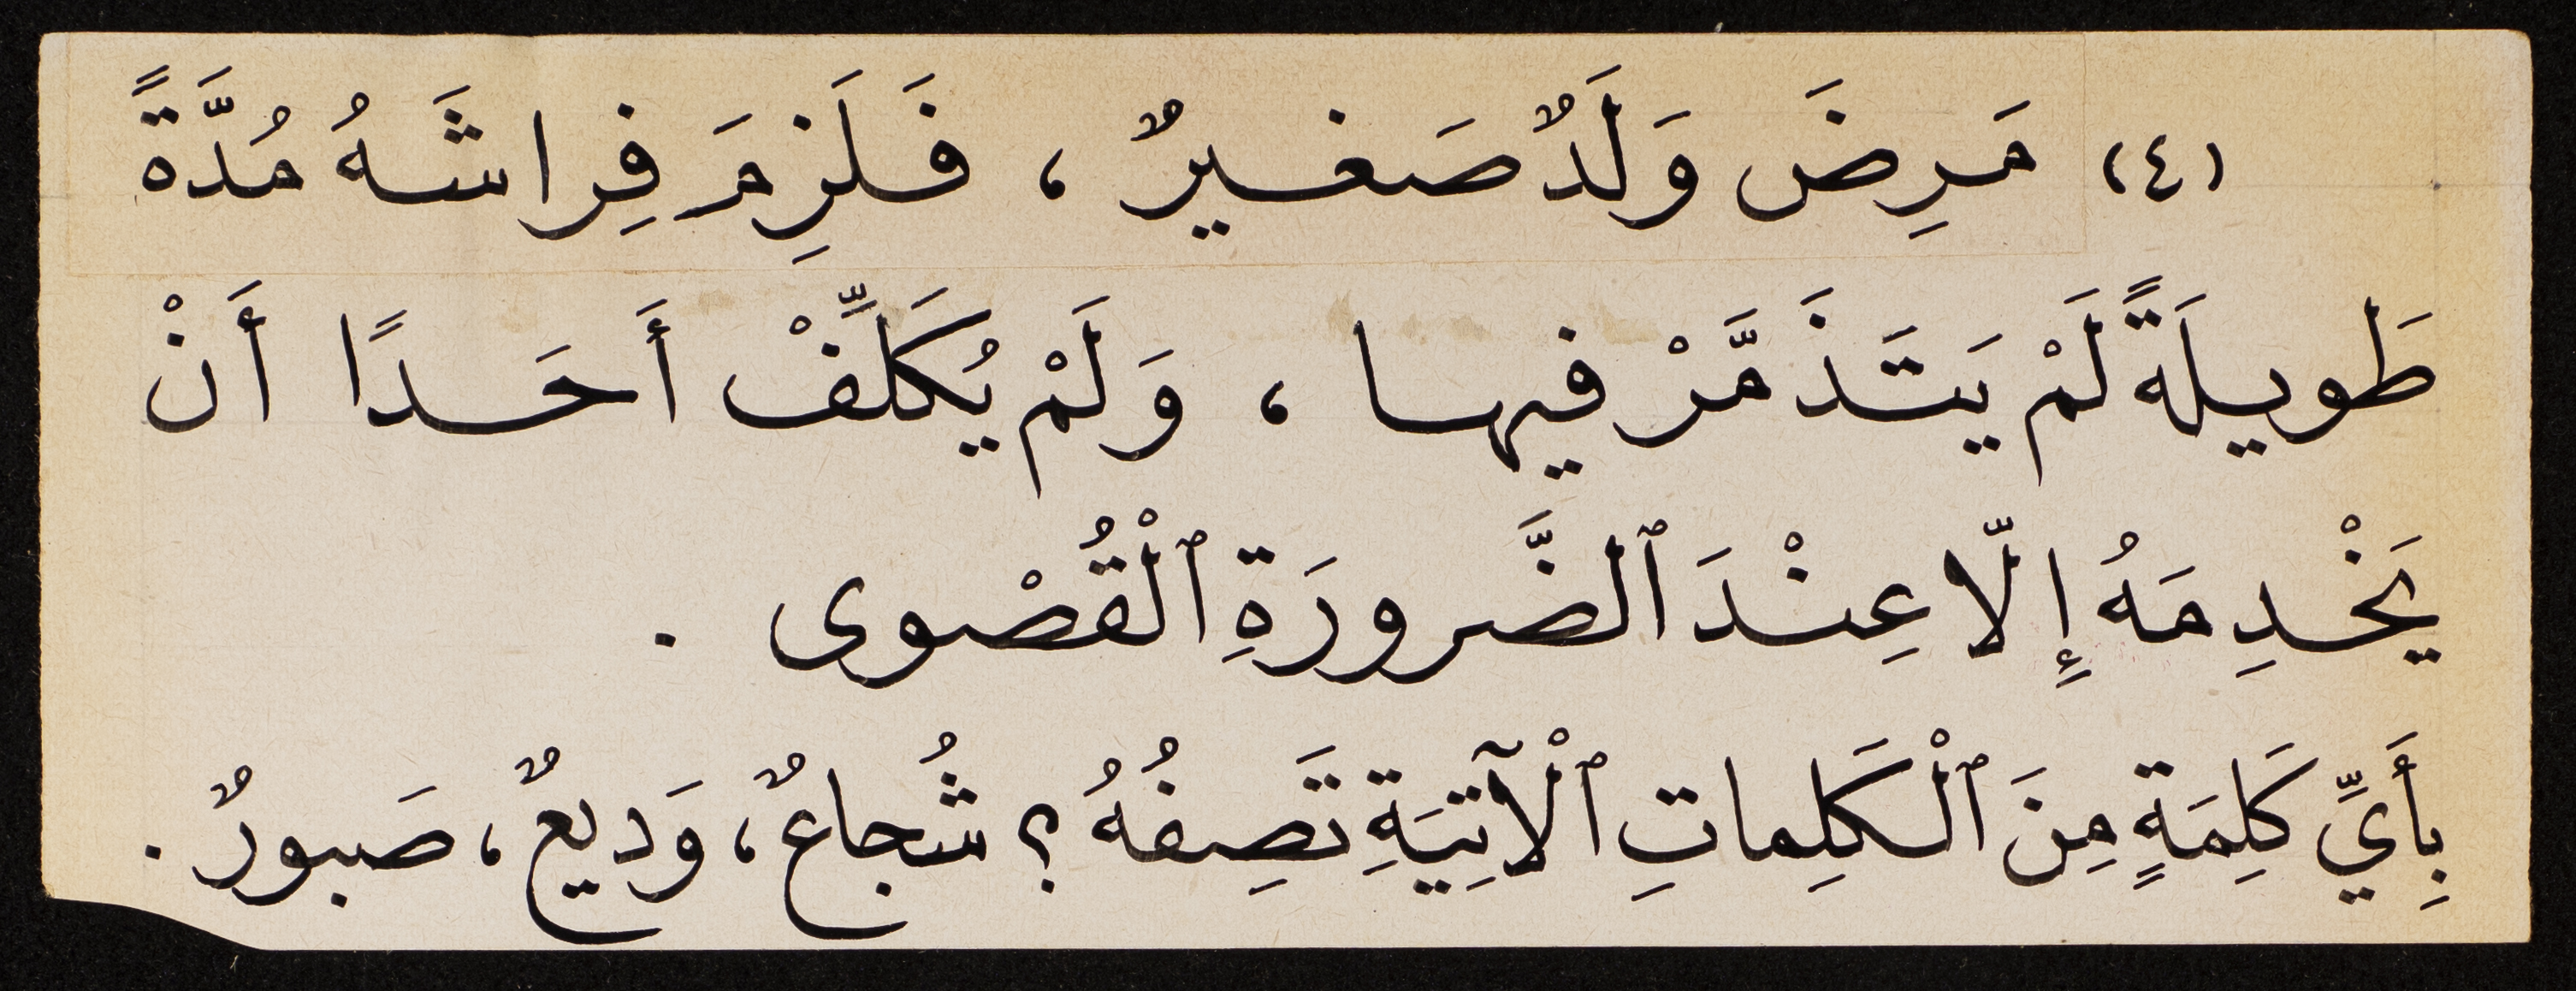 (٤) مَرِضَ وَلَدٌ صَغيرٌ ، فَلَزِمَ فِراشَهُ مُدَّةً
طَويلَةً لَمْ يَتَذَمَّرْ فيها ، وَلَمْ يُكَلِّفْ أَحَدًا أَنْ
يَخْدِمَهُ إِلّا عِنْدَ ٱلضَّرورَةِ ٱلْقُصْوى .
بِأَيِّ كَلِمَةٍ مِنَ ٱلْكَلِماتِ ٱلْآتِيَةِ تَصِفُهُ ؟ شُجاعٌ ، وَديعٌ ، صَبورٌ .